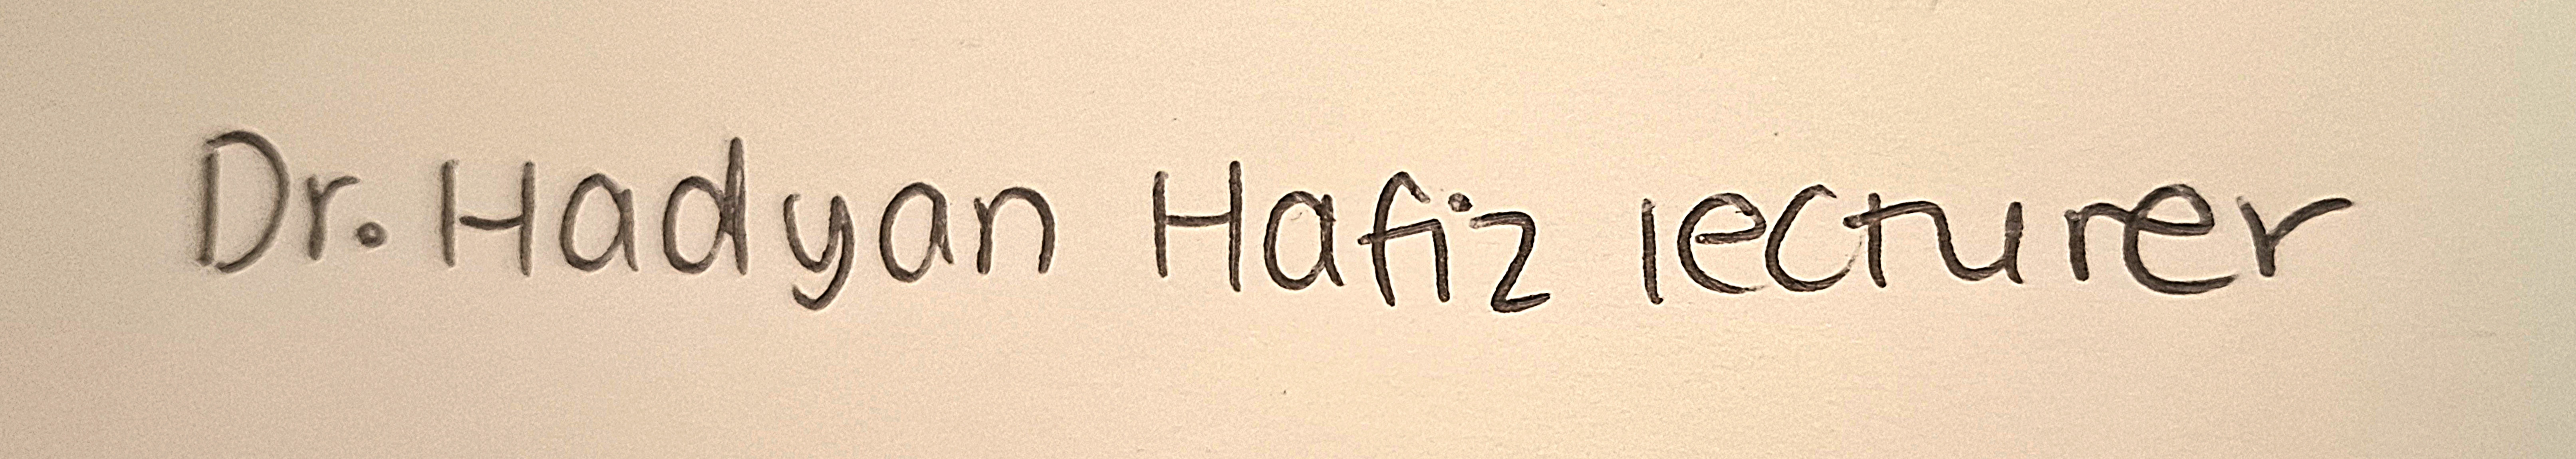 Dr. Hadyan Hafiz lecturer